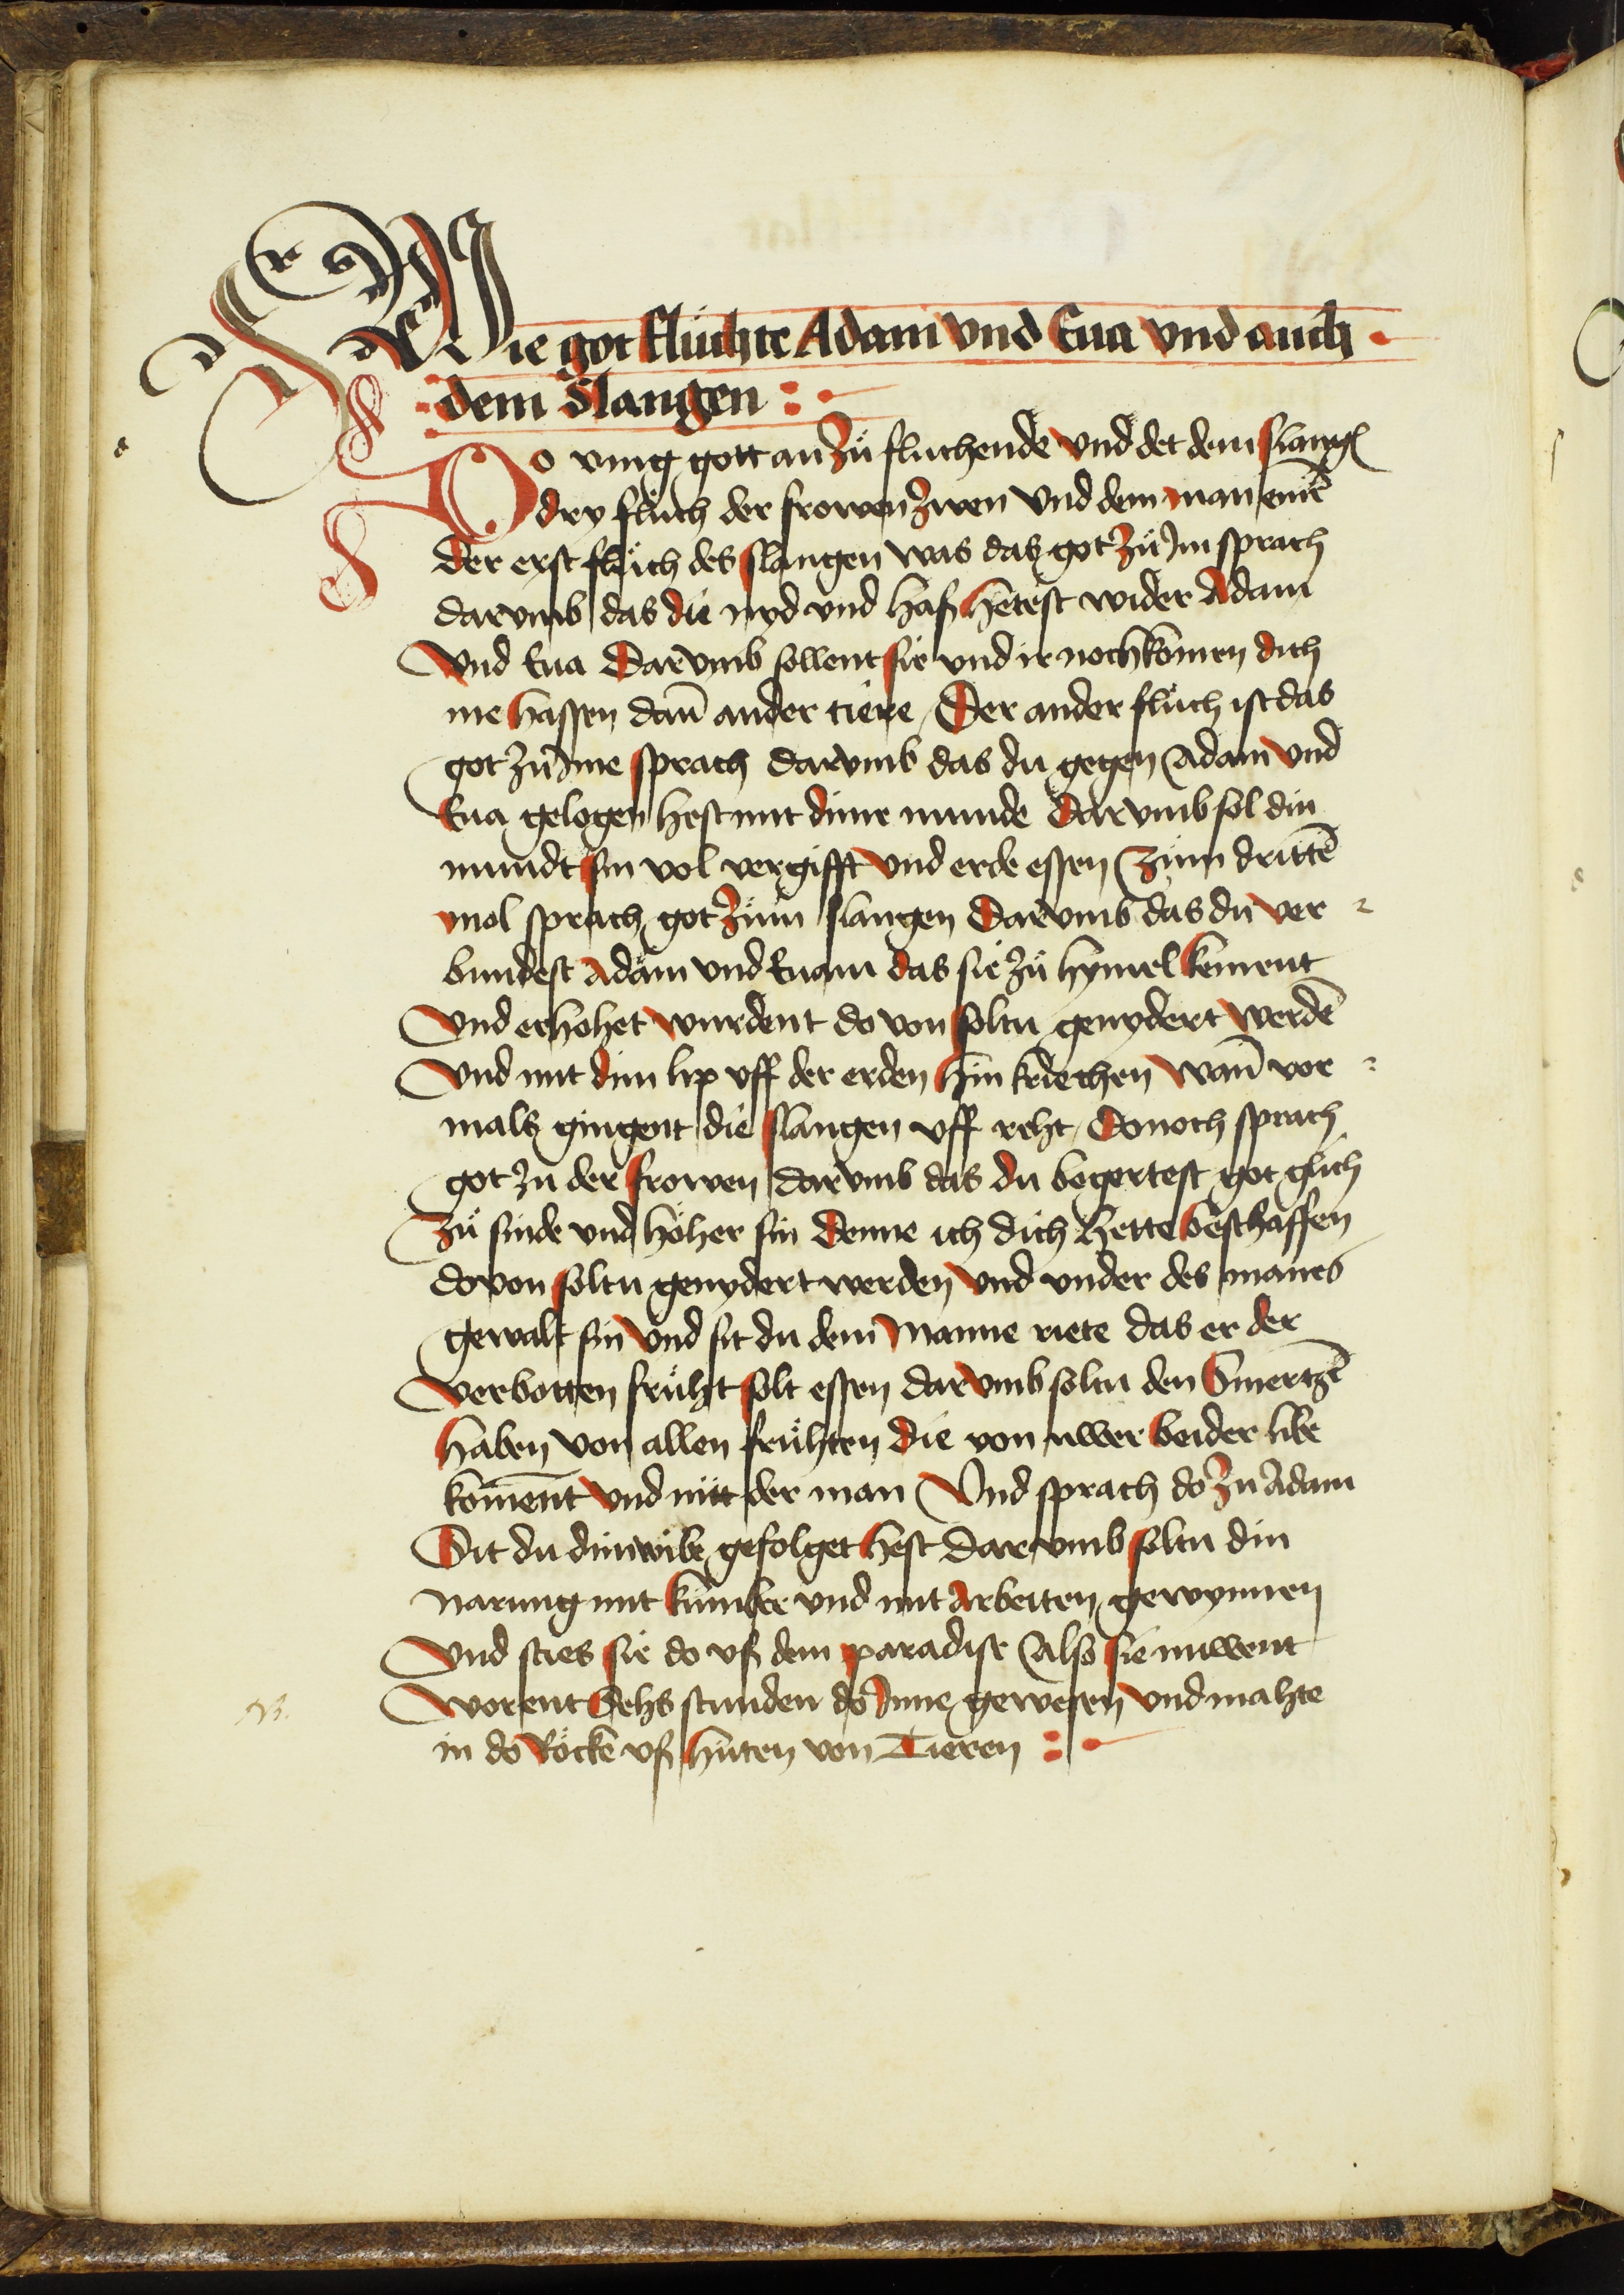 Wie got fluͦchte Adam vnd Eua vnd auch
dem Slangen
Do ving gott an zuͦ fluchende vnd det dem slangen̄
dry fluͦch der frowen zwen vnd dem man einē
Der erst fluͦch des slangen was das got zuͦ Im sprach
darvmb das du nyd vnd haß hetest wider Adam
Vnd Eua Darvmb sollent sie vnd ir nochkomen dich
me hassen dañ ander tiere / Der ander fluͦch ist das
got zuͦ Ime sprach darvmb das du gegen Adam vnd
Eua gelogen hest mit dime munde Darvmb sol din
mundt sin vol vergifft vnd erde essen Zum drittē
mol sprach got zuͦm slangen Darvmb das du ver
bundest Adam vnd Euam das sie zuͦ hymel kement
Vnd erhohet wurdent do von soltu genydert werdē
Vnd mit dim lip vff der erden hin kriechen wañ vor
mals gingent die slangen vff reht / Donoch sprach
got zu der frowen darvmb das du begertest got glich
Zuͦ sinde vnd höher sin denne ich dich hette beschaffen
do von soltu genydert werden vnd vnder des manes
gewalt sin vnd sit du dem Manne riete das er der
verbotten fruͤht solt essen darvmb soltu den Smertzē
haben von allen fruͤhten die von uwer beider libe
koment vnd nüt der man Vnd sprach do zu Adam
Sit du dim wibe gefolget hest darvmb soltu din
narung mit kumber vnd mit arbeiten gewynnen
Vnd sties sie do vß dem paradise also sie nuwent
worent Sehs stunden do Inne gewesen vnd mahte
in do Röcke vß huten von Tieren